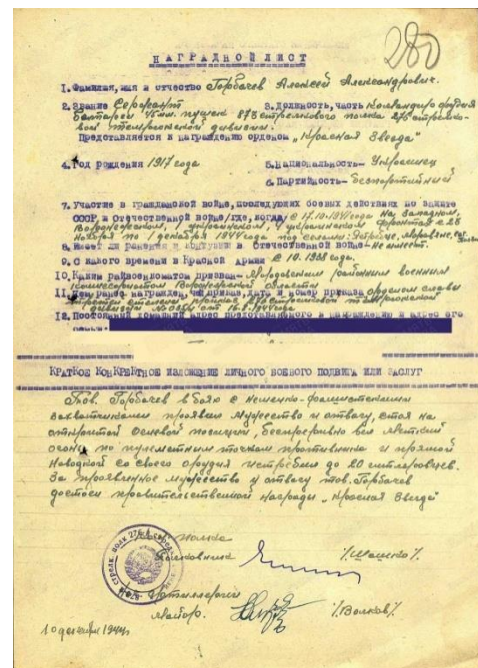 280
НАГРАДНОЙ ЛИСТ
1. Фамилия, имя и отчество Горбачев Алексей Александрович.
2. Звание Сержант 3. Должность, часть Командир орудия
батареи 45мм. пушек 873 стрелкового полка 276 стрелко-
вой темрюкской дивизии.
Представляется к награждению орденом „Красная Звезда"
4. Год рождения 1917 года 5. Национальность- Украинец
6. Партийность- беспартийный
7. Участие в гражданской войне, последующих боевых действиях по защите
СССР, и Отечественной войне/где, когда/ с 17.10.1941 года на Западном,
Воронежском, украинском, 4 украинском фронтах с 28
ноября по 1 декабря 1944 года под селами
8. Имеет ли ранения и контузии в Отечественной войне- Не имеет.
9. С какого времени в Красной Армии с 10.1938 года.
10. Каким райвоенкоматом призван- районным военным
комиссариатом Воронежской области
11. Чем ранее награжден, чей приказ, дата и номер приказа орденом славы
третьей степени, приказ 276 стрелковой темрюкской
дивизии № от 16. 1944 года
12. Постоянный домашний адрес представляемого к награде и адрес его
семьи:
КРАТКОЕ КОНКРЕТНОЕ ИЗЛОЖЕНИЕ ЛИЧНОГО БОЕВОГО ПОДВИГА ИЛИ ЗАСЛУГ
Тов. Горбачев в бою с немецко-фашистскими
захватчиками проявил мужество и отвагу, стоя на
открытой огневой позиции, беспрерывно вел меткий
огонь по пулеметным точкам противника и прямой
наводкой со своего орудия истребил до 20 гитлеровцев.
За проявленное мужество и отвагу тов. Горбачев
достоин правительственной награды „Красная Звезда"
полка
Полковник /Шашко/.
Артиллерии
Майор. /Волков/.
10 декабря 1944г.